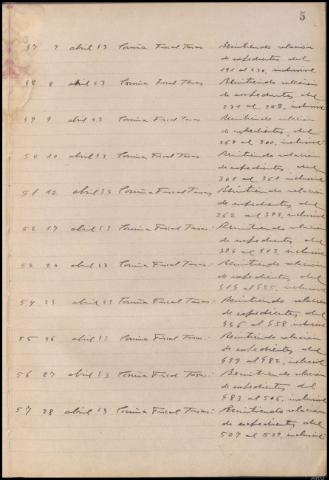 5
47 7 abril 53 Comisa Fiscal Tasas Remitiendo relacion
de expedientes del
191 al 230, inclusive
48 8 abril 53 Comisa Fiscal Tasas Remitiendo relacion
de expedientes del
231 al 268, inclusive
49 9 abril 53 Comisa Fiscal Tasas Remitiendo relacion
de expedientes del
269 al 300, inclusive
50 10 abril 53 Comisa Fiscal Tasas Remitiendo relacion
de expedientes del
301 al 361, inclusive
51 12 abril 53 Comisa Fiscal Tasas Remitiendo relacion
de expedientes del
362 al 393, inclusive
52 17 abril 53 Comisa Fiscal Tasas Remitiendo relacion
de expedientes del
394 al 413, inclusive
53 abril 53 Comisa Fiscal Tasas Remitiendo relacion
de expedientes del
al 435, inclusive
54 abril 53 Comisa Fiscal Tasas Remitiendo relacion
de expedientes del
436 al 458 inclusive
55 26 abril 53 Comisa Fiscal Tasas Remitiendo relacion
de expedientes del
459 al 482, inclusive
56 27 abril 53 Comisa Fiscal Tasas Remitiendo relacion
de expedientes del
483 al 506, inclusive
57 28 abril 53 Comisa Fiscal Tasas Remitiendo relacion
de expedientes del
507 al 509, inclusive